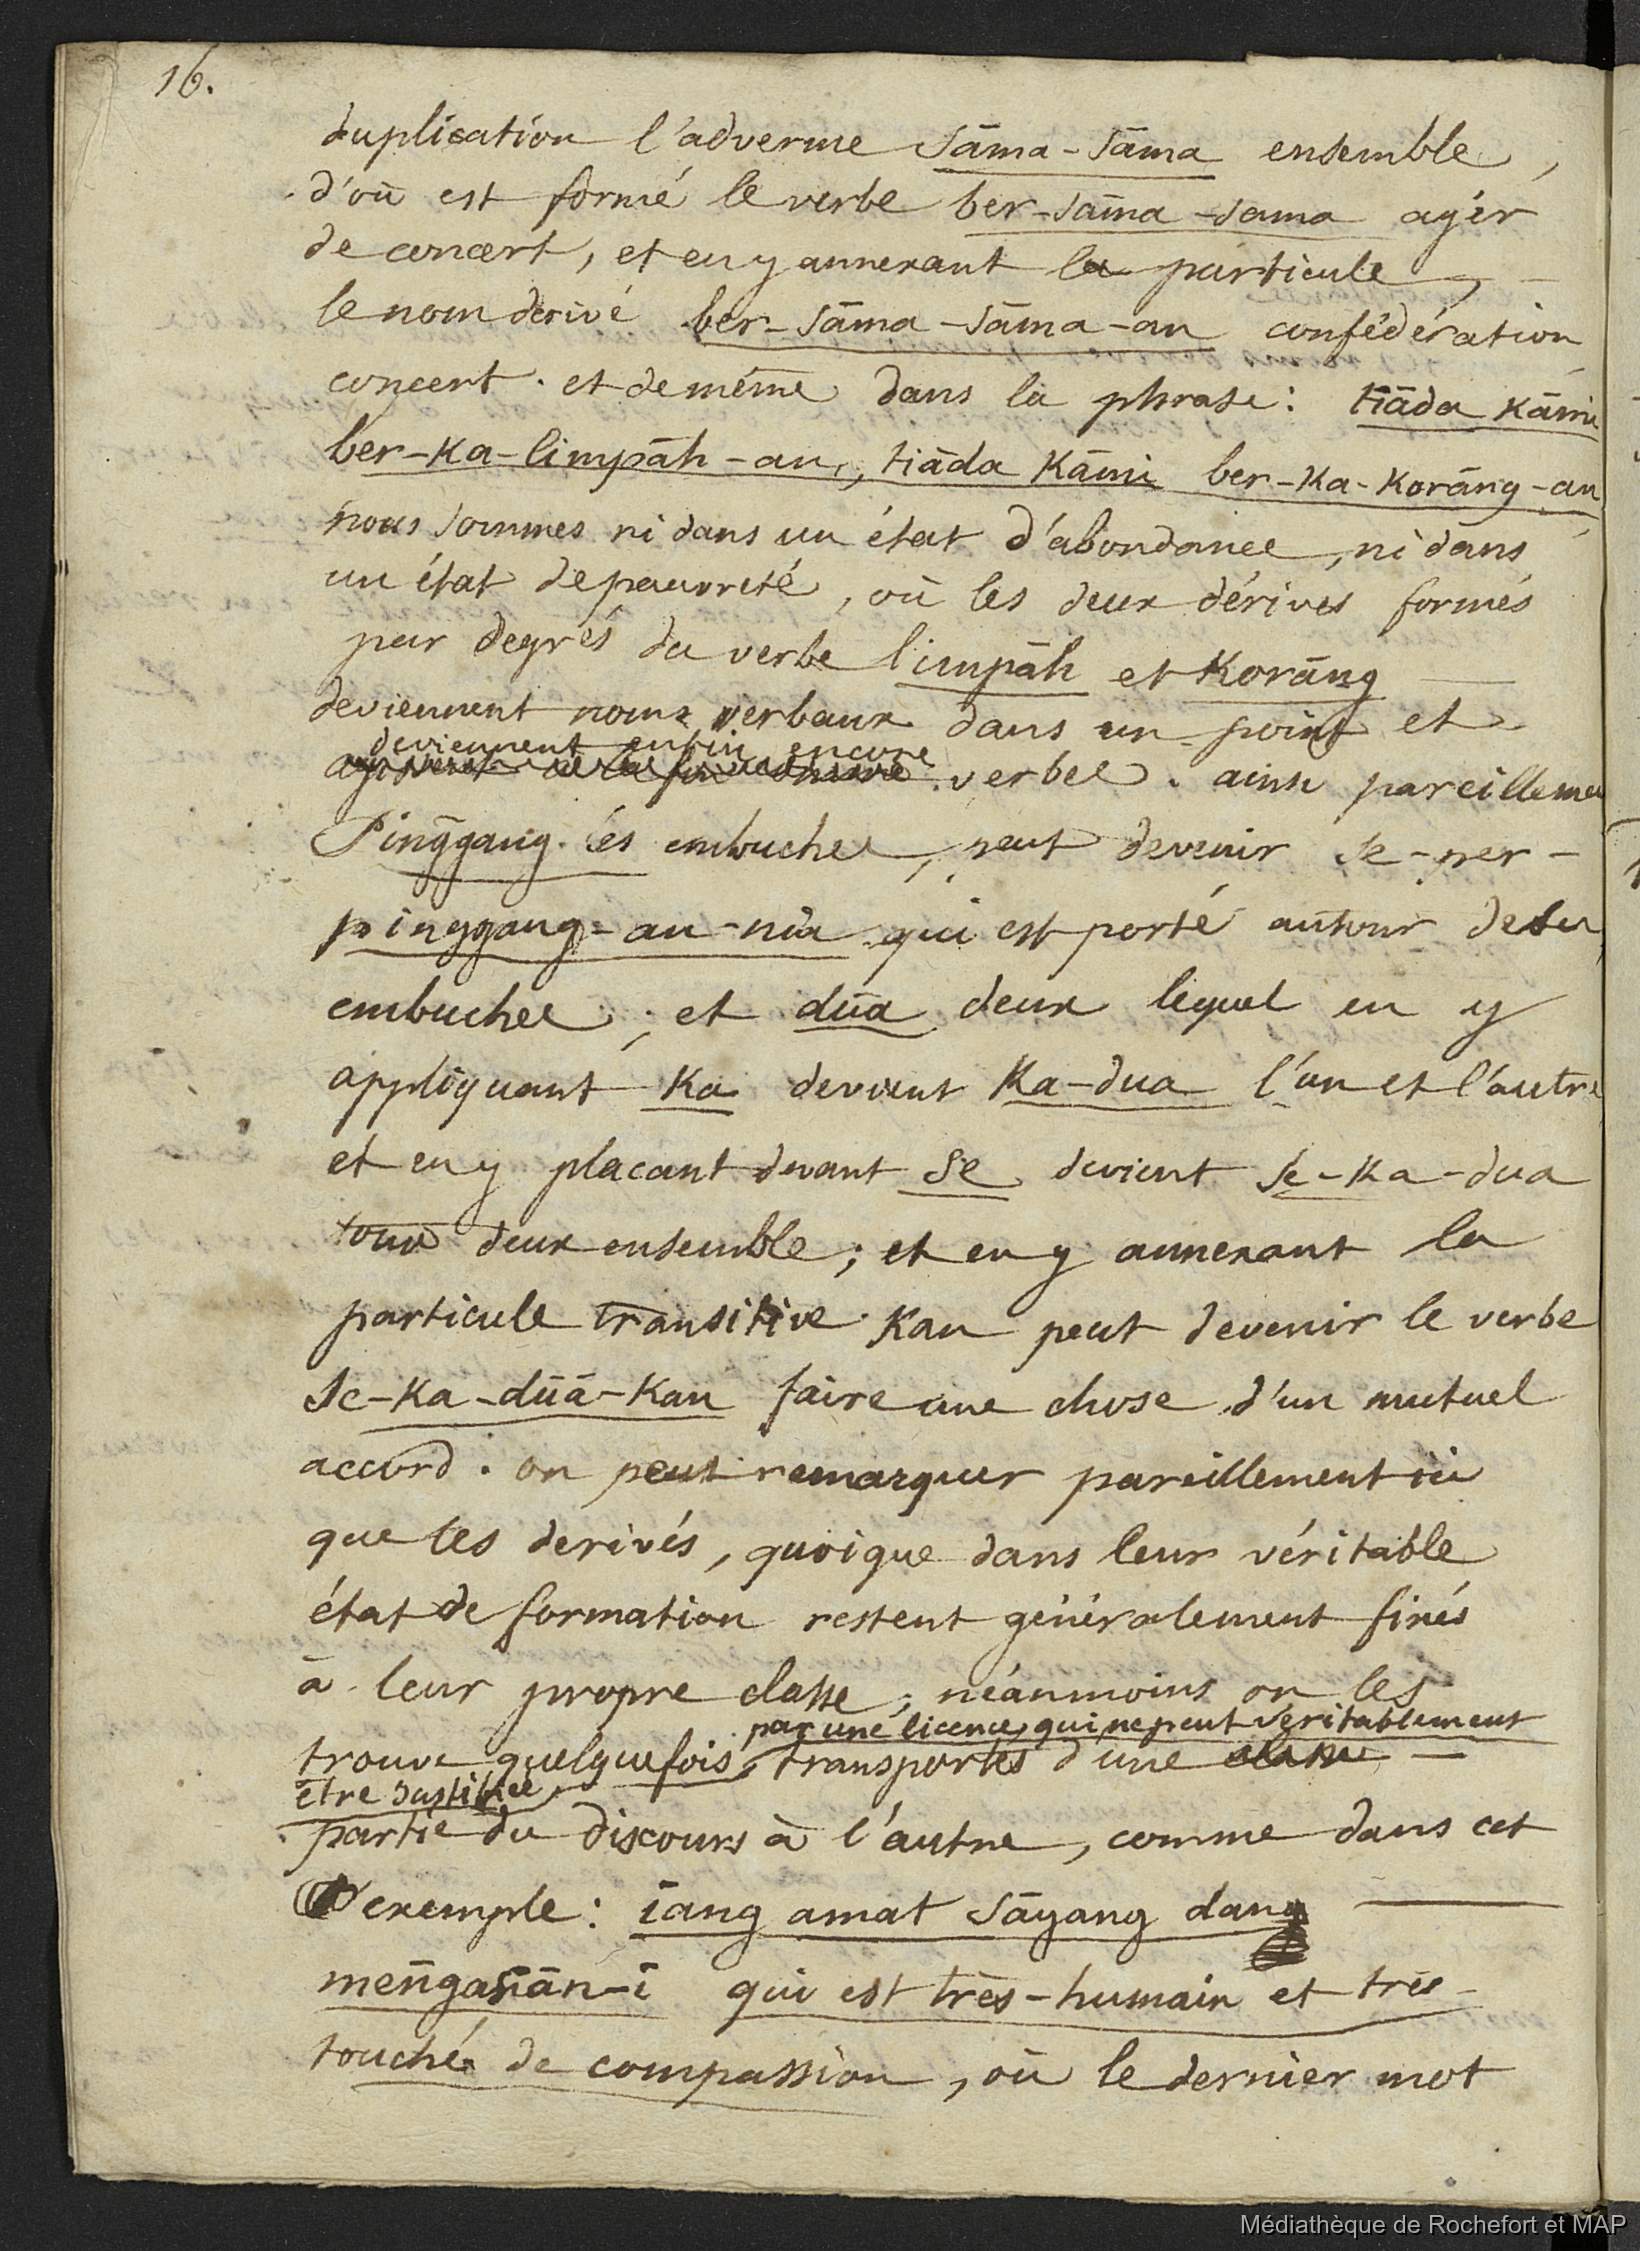 16.
duplication l'adverme sāma-sāma ensemble,
d'où est formé le verbe ber-sāma-sama agér
de concert, et en y annexant la particule,
le nom dérivé ber-sāma-sāma-an confédération
concert. et de même dans la phrase: tiāda kāmi
ber-ka-limpāh-an, tiāda kāmi ber-ka-korāng-an
nous sommes ni dans un état d'abondance, ni dans
un état de pauvreté, où les deux dérives formés
par degrés du verbe limpāh et korāng
deviennent noms verbaux dans un point et
deviennent enfin encore
verbes. ainsi pareilleme
Pinḡgang. les embuches, peut devenir se-per-
pinggang-an-nia qui est porté autour de su
embuches; et dūa deux lequel en y
appliquant ka devient ka-dua l'un et l'autre
et en y placant devant se devient se-ka-dua
tous deux ensemble; et en y annexant la
particule transitive kan peut devenir le verbe
se-ka-dūā-kan faire une chose d'un mutuel
accord. on peut remarquer pareillement ici
que les derivés, quoique dans leur véritable
état de formation restent généralement fixés
à leur propre classe, néanmoins on les
par une licence, qui ne peut véritablement
trouve quelquefois, transportés d'une
être justifiée
partie du discours à l'autre, comme dans cet
exemple: iang amat sāyang dang
men̄gasiān-ī qui est très-humain et très-
touché de compassion, où le dernier mot
Médiathèque de Rochefort et MAP